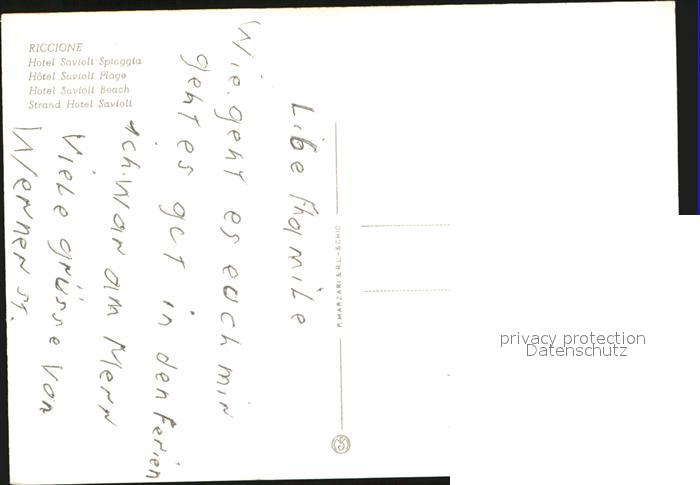 RICCIONE
Hotel Savioli Spiaggia
Hôtel Savioli Plage
Hotel Savioli Beach
Strand Hotel Savioli
Libe Fhamile
Wie geht es euch mir
geht es gut in den Ferien
ich War am Merr
Viele grüsse Von
Werner St.
P. MARZARI S.R.L. - SCHIO
privacy protection
Datenschutz